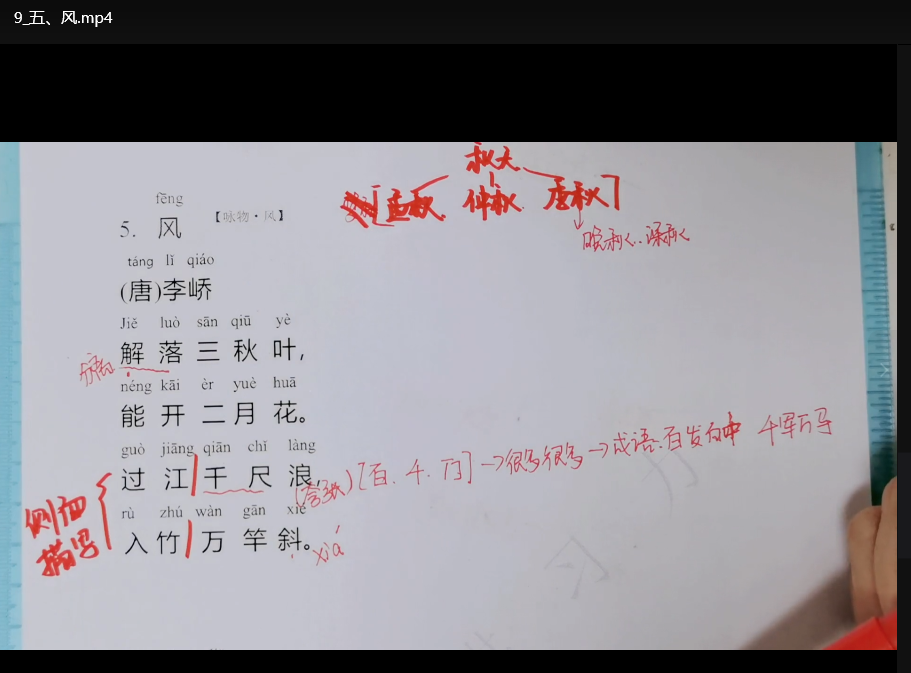 9_五、风.mp4
秋天
孟秋 仲秋 季秋
晚秋、深秋
fēng
5. 风 【咏物·风】
táng lǐ qiáo
(唐)李峤
Jiě luò sān qiū yè
解落三秋叶,
néng kāi èr yuè huā
能开二月花。
guò jiāng qiān chǐ làng
过江千尺浪,
(夸张)[百、千、万]→很多很多→成语:百发百中 千军万马
rù zhú wàn gān xié
入竹万竿斜。
xiá
侧面
描写